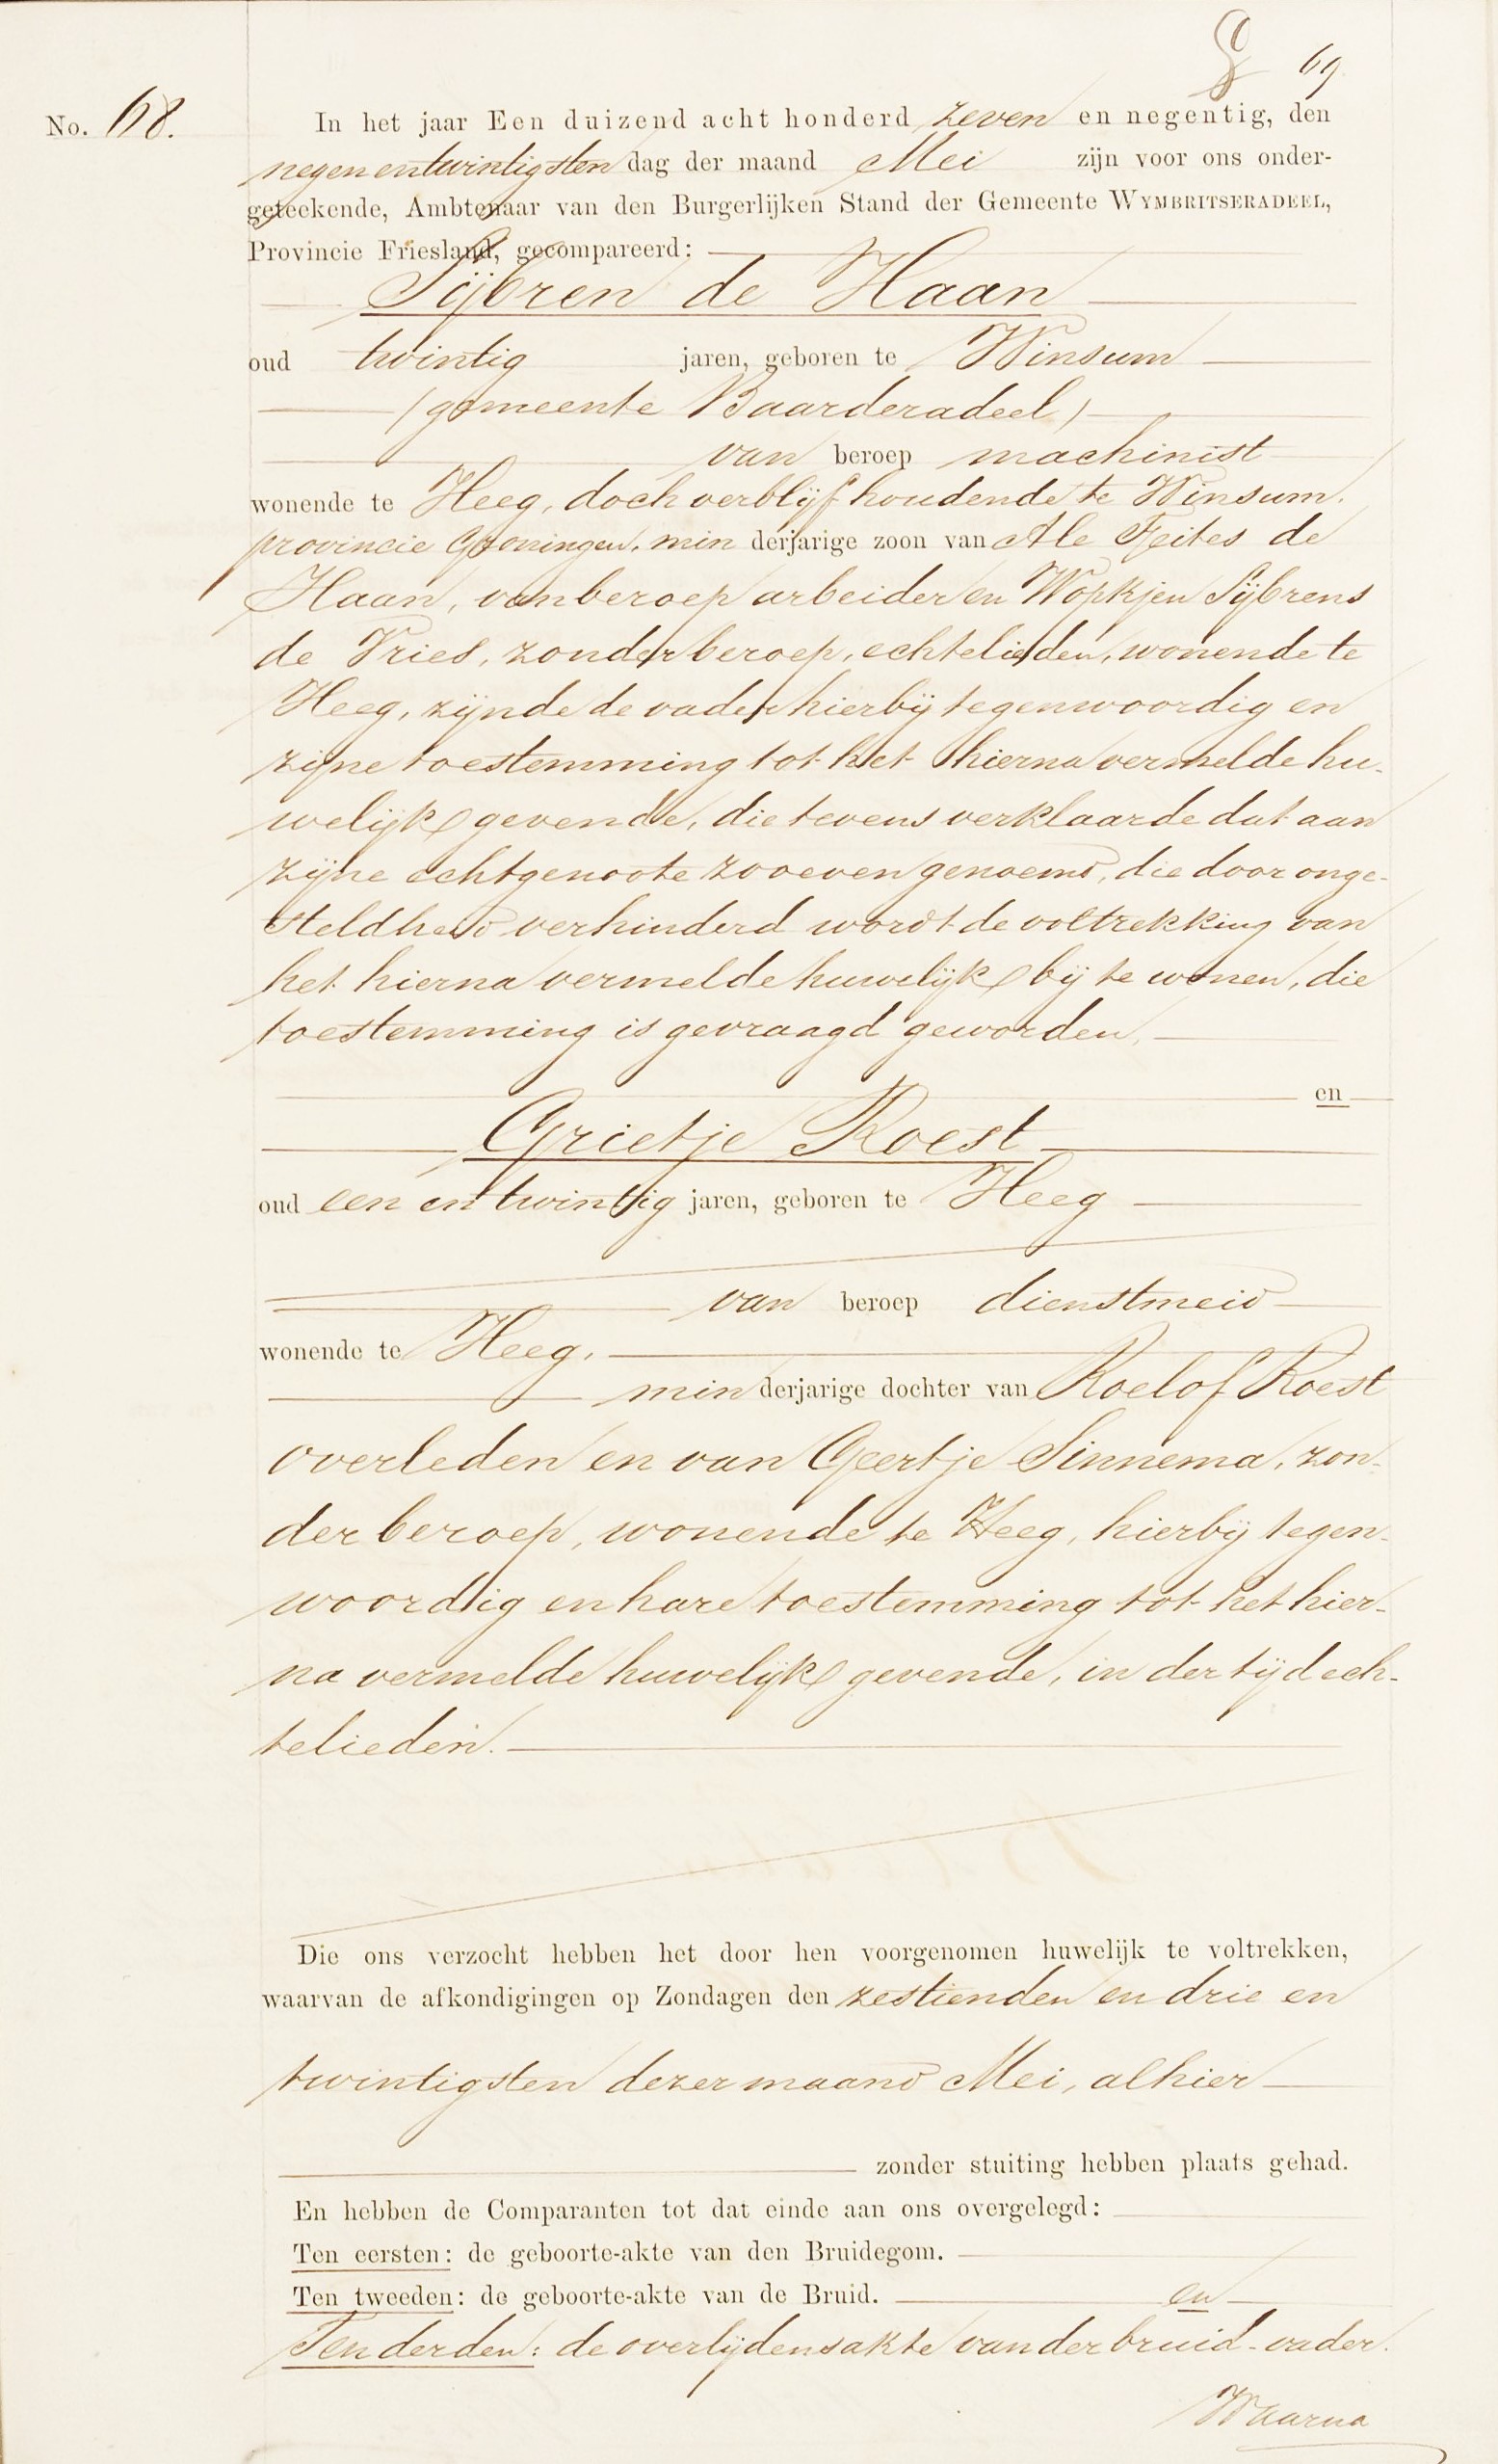 69
No. 68.
In het jaar Een duizend acht honderd zeven en negentig, den
negenentwintigsten dag der maand Mei zijn voor ons onder-
geteekende, Ambtenaar van den Burgerlijken Stand der Gemeente WYMBRITSERADEEL,
Provincie Friesland, gecompareerd:
Sijbren de Haan
oud twintig jaren, geboren te Winsum
(gemeente Baarderadeel)
van beroep machinist
wonende te Heeg, doch verblijf houdende te Winsum,
provincie Groningen, min derjarige zoon van Ale Feites de
Haan, van beroep arbeider en Wopkjen Sijbrens
de Vries, zonder beroep, echtelieden, wonende te
Heeg, zijnde de vader hierbij tegenwoordig en
zijne toestemming tot het hierna vermelde hu-
welijk gevende, die tevens verklaarde dat aan
zijne echtgenoote zooeven genoemd, die door onge-
steldheid verhinderd wordt de voltrekking van
het hierna vermelde huwelijk bij te wonen, die
toestemming is gevraagd geworden,
en
Grietje Roest
oud een en twintig jaren, geboren te Heeg
van beroep dienstmeid
wonende te Heeg,
min derjarige dochter van Roelof Roest
overleden en van Geertje Sinnema, zon-
der beroep, wonende te Heeg, hierbij tegen-
woordig en hare toestemming tot het hier-
na vermelde huwelijk gevende, in der tijd ech-
telieden.
Die ons verzocht hebben het door hen voorgenomen huwelijk te voltrekken,
waarvan de afkondigingen op Zondagen den zestienden en drie en
twintigsten dezer maand Mei, alhier
zonder stuiting hebben plaats gehad.
En hebben de Comparanten tot dat einde aan ons overgelegd:
Ten eersten: de geboorte-akte van den Bruidegom.
Ten tweeden: de geboorte-akte van de Bruid. en
Ten derden: de overlijdensakte van der bruid-vader.
Waarna